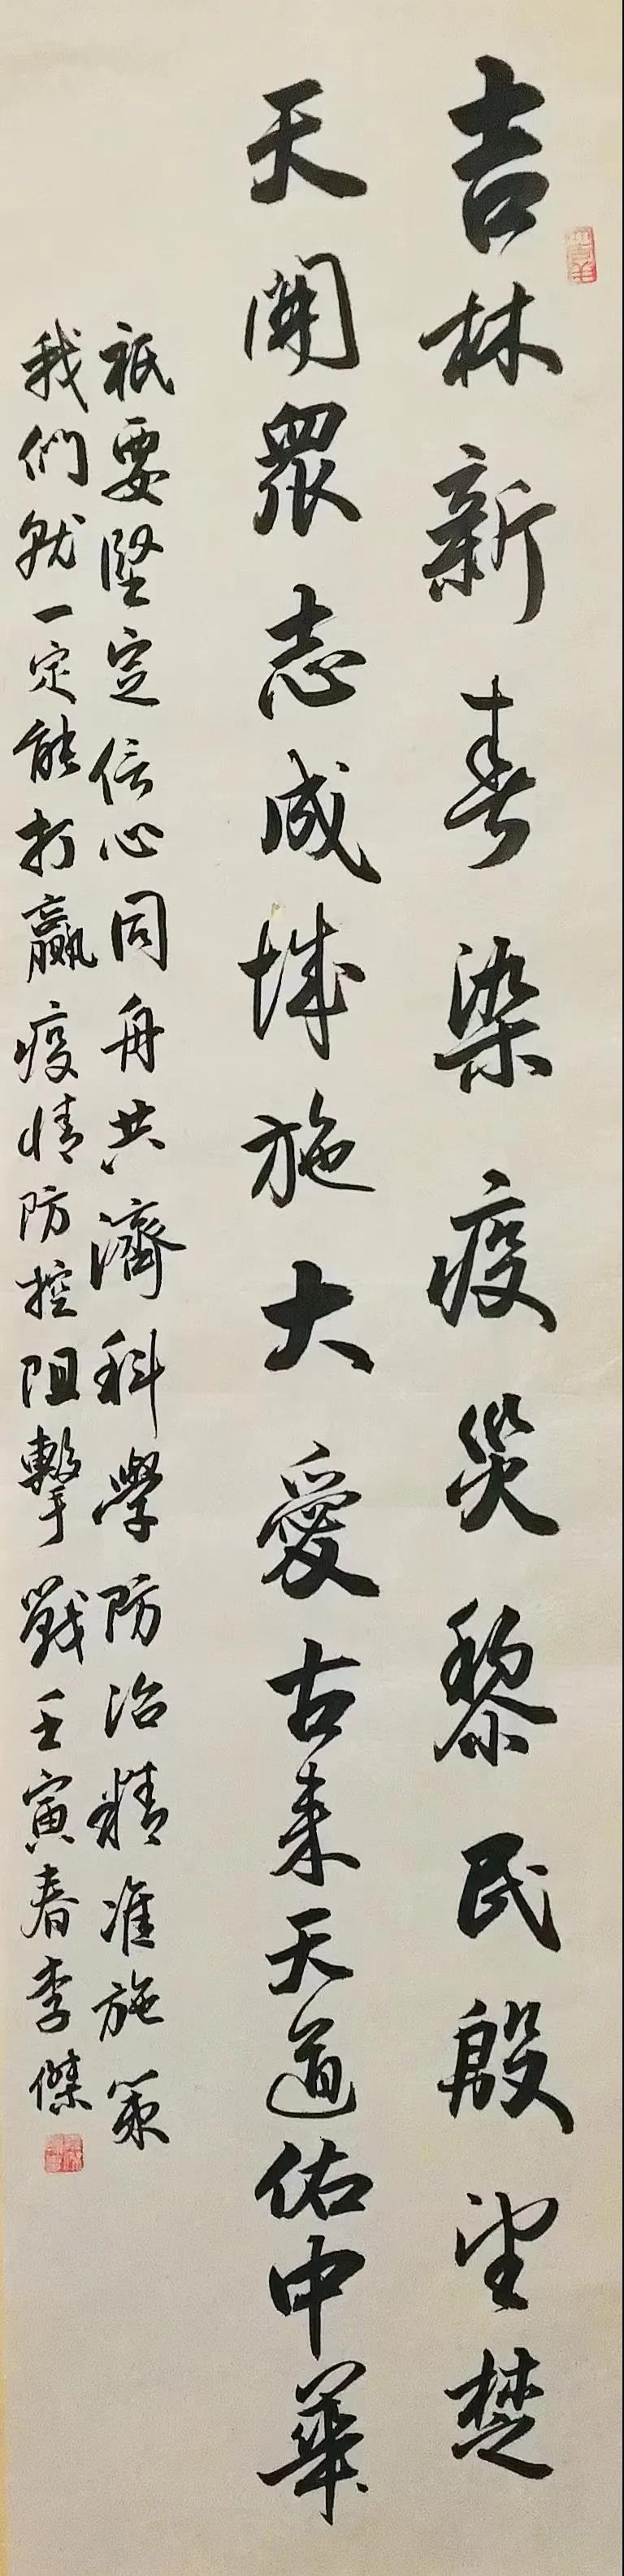 吉林新春染疫災黎民殷望楚
天開眾志成城施大愛古来天道佑中華
祇要堅定信心同舟共濟科學防治精准施策
我們就一定能打贏疫情防控阻擊戰壬寅春李傑